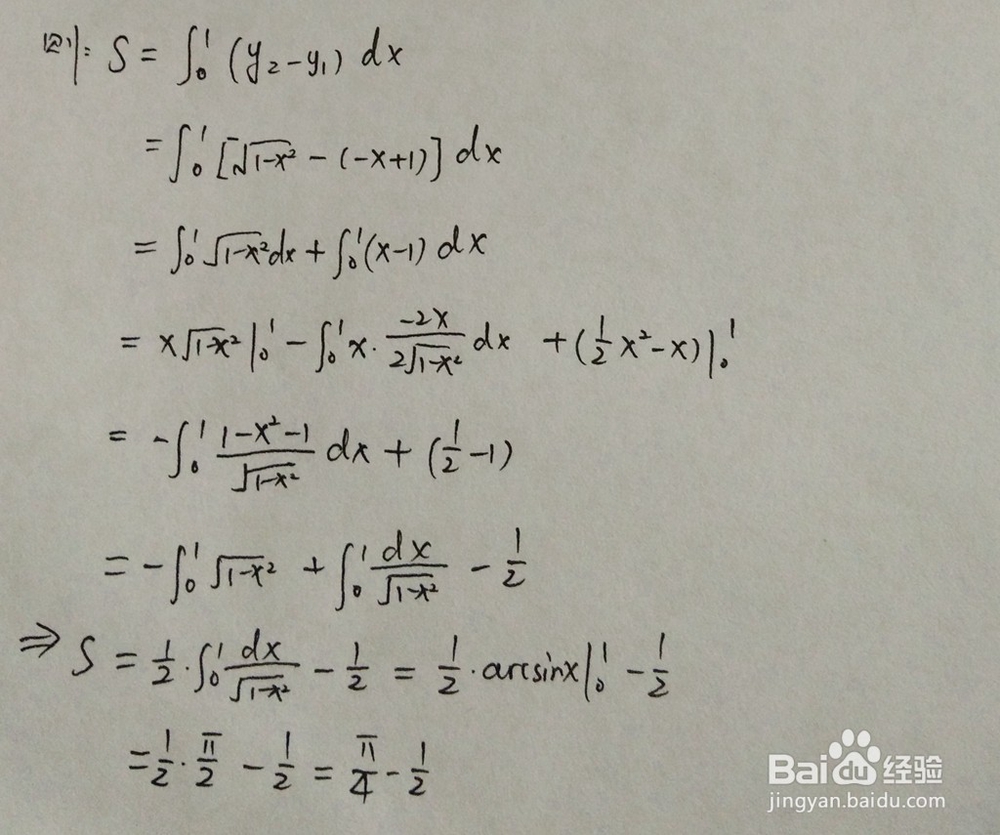 则: S = ∫₀¹ (y₂-y₁) dx
= ∫₀¹ [√(1-x²) - (-x+1)] dx
= ∫₀¹ √(1-x²) dx + ∫₀¹ (x-1) dx
= x√(1-x²) |₀¹ - ∫₀¹ x · (-2x)/(2√(1-x²)) dx + (½x²-x) |₀¹
= -∫₀¹ (1-x²-1)/√(1-x²) dx + (½-1)
= -∫₀¹ √(1-x²) + ∫₀¹ dx/√(1-x²) - ½
⇒ S = ½ · ∫₀¹ dx/√(1-x²) - ½ = ½ · arcsinx |₀¹ - ½
= ½ · π/2 - ½ = π/4 - ½
Baidu 经验
jingyan.baidu.com